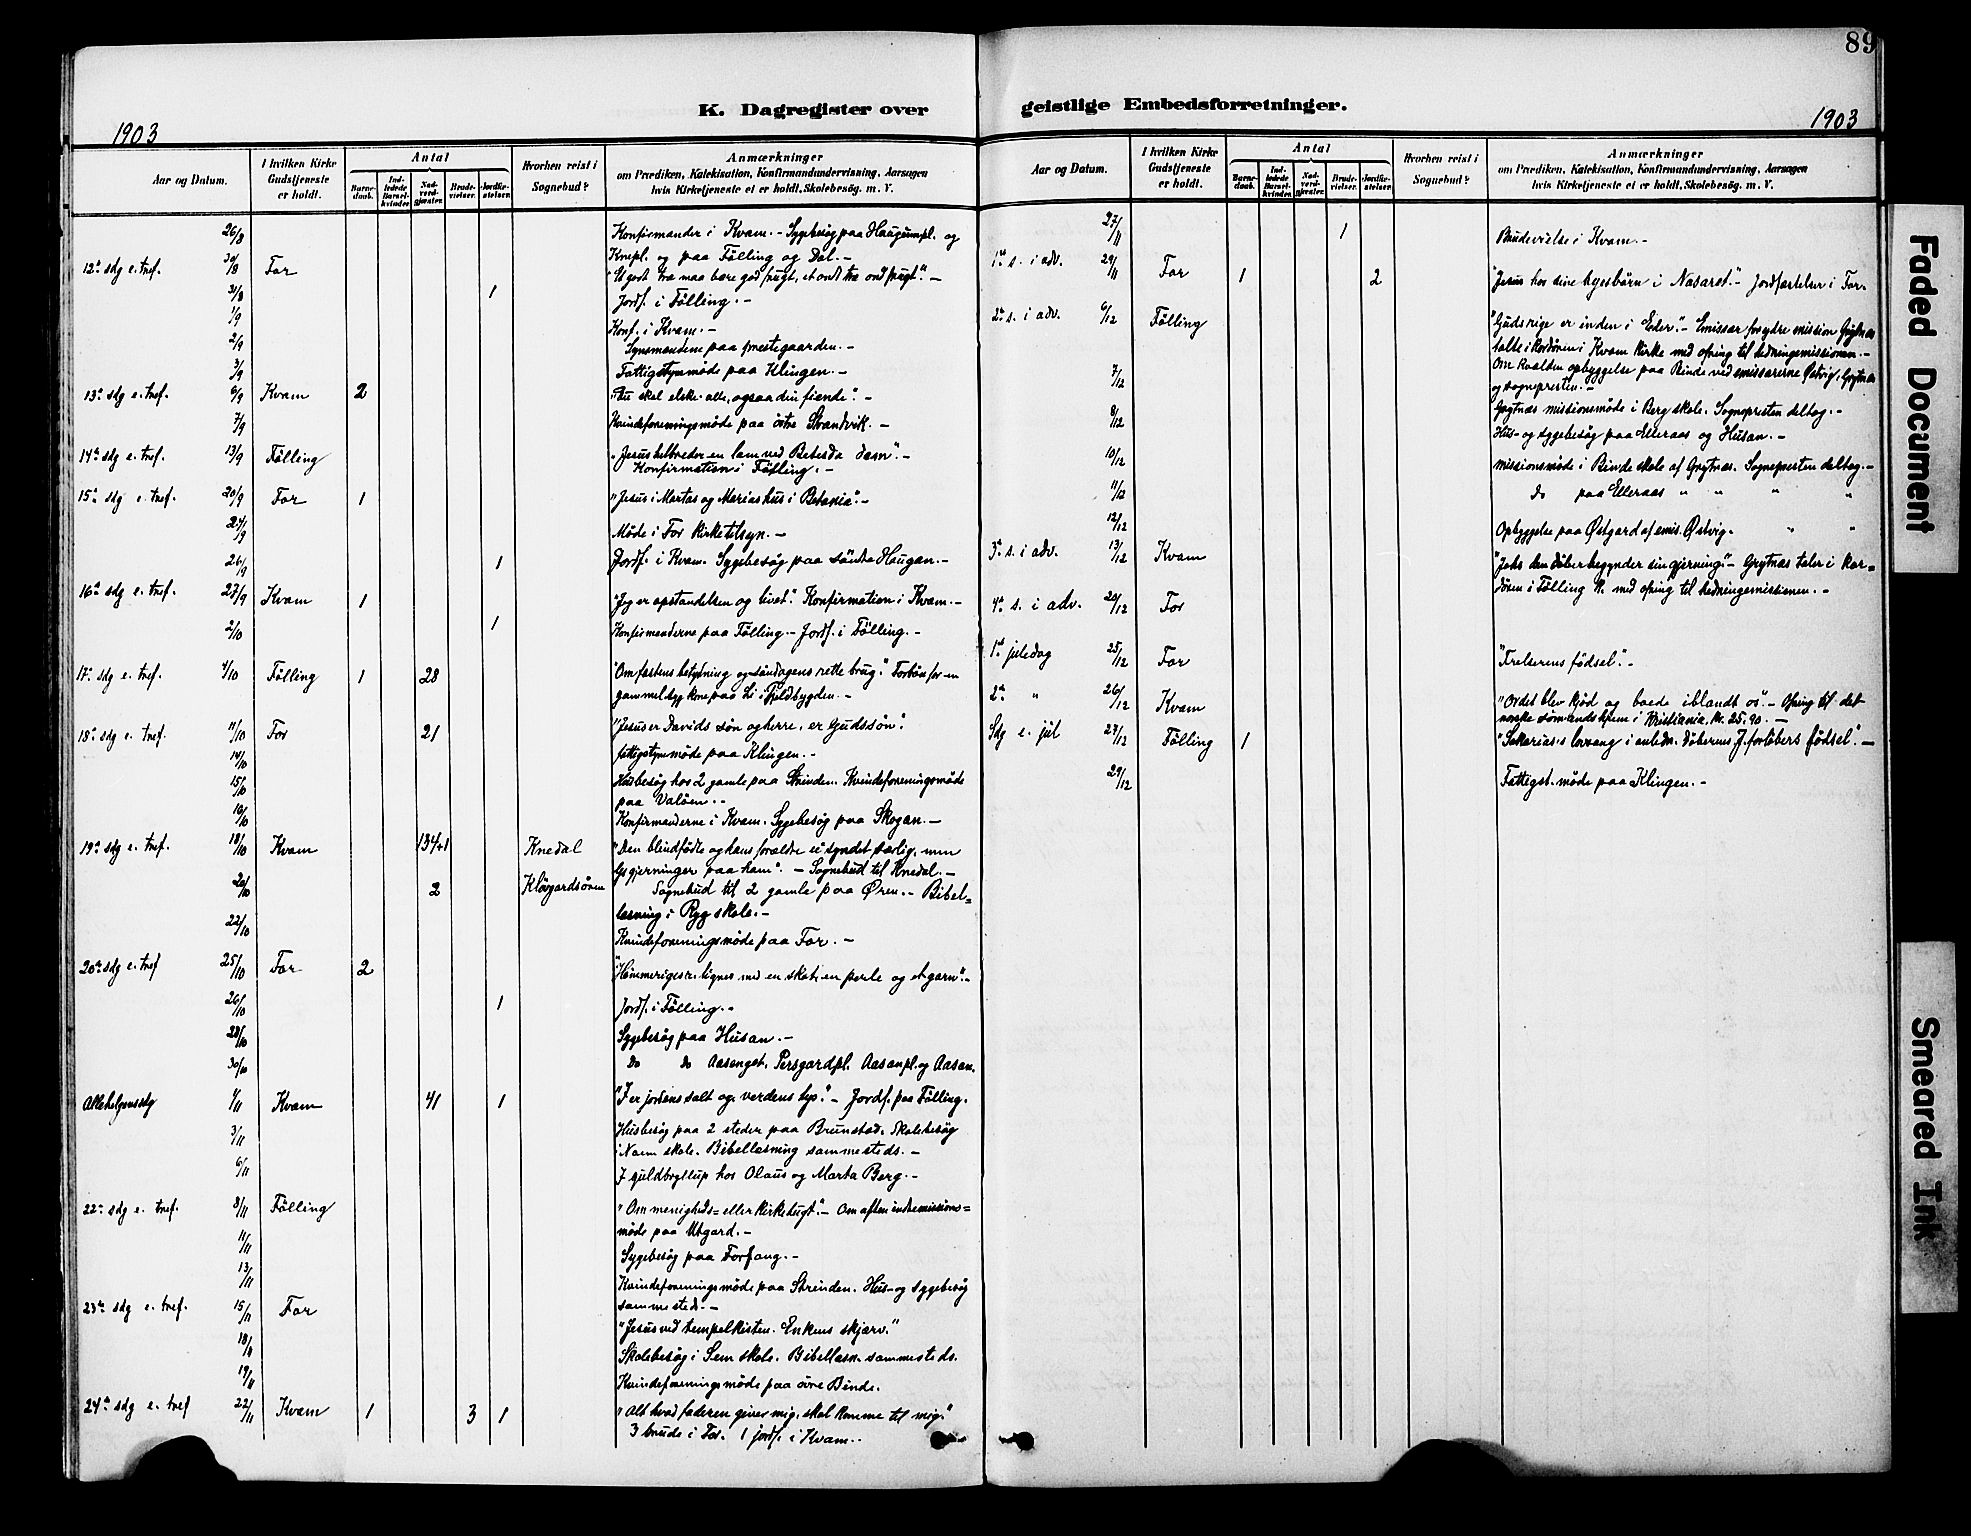 89
K. Dagregister over geistlige Embedsforretninger.
1903
1903
Aar og Datum.
I hvilken Kirke Gudstjeneste er holdt.
Antal
Barnedaab.
Indledede Barselkvinder.
Nadverdgjæster.
Brudevielser.
Jordfæstelser.
Hvorhen reist i Sognebud?
Anmærkninger
om Prædiken, Katekisation, Konfirmandundervisning, Aarsagen
hvis Kirketjeneste ei er holdt, Skolebesøg. m. V.
26/8 Konfirmander i Kvam. - Sygebesøg paa Haugumpl. og
Knepl. og paa Følling og Dal. -
12te sdg e. tref. 30/8 For "Et godt træ maa bære god frugt, et ondt træ ond frugt". -
31/8 1 Jordf. i Følling. -
1/9 Konf. i Kvam. -
2/9 Synsmændene paa prestegaarden. -
3/9 Fattigstyrmøde paa Klingen. -
13de sdg e. tref. 6/9 Kvam 2 "Du skal elske alle, ogsaa din fiende". -
7/9 Kvindeforeningsmøde paa østre Strandvik. -
14de sdg e. tref. 13/9 Følling "Jesus helbreder en lam ved Betesda dam". -
Konfirmation i Følling. -
15de sdg e. tref. 20/9 For 1 "Jesus i Martas og Marias hus i Betania". -
24/9 Møde i For kirketilsyn. -
26/9 1 Jordf. i Kvam. Sygebesøg paa søndre Haugan. -
16de sdg e. tref. 27/9 Kvam 1 "Jeg er opstandelsen og livet". Konfirmation i Kvam. -
2/10 1 Konfirmanderne paa Følling. - Jordf. i Følling. -
17de sdg e. tref. 4/10 Følling 1 28 "Om fastens betydning og søndagens rette brug". Forbøn for en
gammel syg kone paa Li i Fjeldbygden. -
18de sdg e. tref. 11/10 For 21 "Jesus er Davids søn og herre, er Guds søn".
14/10 Fattigstyrmøde paa Klingen. -
15/10 Husbesøg hos 2 gamle paa Strinden. Kvindeforeningsmøde
paa Valøen. -
Konfirmanderne i Kvam. Sygebesøg paa Skogan. -
19de sdg e. tref. 18/10 Kvam 134+1 Knedal "Den blindfødte og hans forældre ei syndet særlig, men
Gs gjerninger paa ham". - Sognebud til Knedal. -
20/10 2 Sognebud til 2 gamle paa Øren. - Bibel=
læsning i Rygg skole. -
22/10 Kvindeforeningsmøde paa For. -
20de sdg e. tref 25/10 For 2 "Himmeriges r. lignes med en skat, en perle og et garn". -
26/10 1 Jordf. i Følling. -
28/10 Sygebesøg paa Husan. -
30/10 Do Do Aasenget, Persgardpl. Aasanpl. og Aasan.
Allehelgensdg 1/11 Kvam 41 1 "I er jordens salt og verdens lys". - Jordf. paa Følling.
3/11 Husbesøg paa 2 steder paa Brunstad. Skolebesøg
i Naem skole. Bibellæsning sammesteds. -
6/11 I guldbryllup hos Olaus og Marta Berg. -
22de sdg e. tref. 8/11 Følling "Om menigheds= eller kirketugt". - Om aften indremissions=
møde paa Utgard. -
11/11 Sygebesøg paa Forfang. -
13/11 Kvindeforeningsmøde paa Strinden. Hus- og sygebesøg
sammesteds. -
23de sdg e. tref. 15/11 For "Jesus ved tempelkisten. Enkens skjærv."
18/11 Skolebesøg i Sem skole. Bibellæsn. sammesteds.
19/11 Kvindeforeningsmøde paa øvre Binde.
24de sdg e. tref 22/11 Kvam 1 3 1 "Alt hvad faderen giver mig, skal komme til mig."
3 brude i For. 1 jordf. i Kvam. -
Aar og Datum.
I hvilken Kirke Gudstjeneste er holdt.
Antal
Barnedaab.
Indledede Barselkvinder.
Nadverdgjæster.
Brudevielser.
Jordfæstelser.
Hvorhen reist i Sognebud?
Anmærkninger
om Prædiken, Katekisation, Konfirmandundervisning, Aarsagen
hvis Kirketjeneste ei er holdt, Skolebesøg. m. V.
27/11 1 Brudevielse i Kvam. -
1ste s. i adv. 29/11 For 1 2 "Jesus hos sine bysbørn i Nasaret". - Jordfæstelser i For.
2de s. i adv. 6/12 Følling "Guds rige er inden i Eder". - Emissær for ydre mission Grytnæs
talte i kordøren i Kvam kirke med ofring til hedningemissionen. -
Om kvælden opbyggelse paa Binde ved emissærerne Østvig, Grytnæs
og sognepresten. -
7/12 Grytnæs missionsmøde i Berg skole. Sognepresten deltog. -
8/12 Hus- og sygebesøg paa Elleraas og Husan. -
10/12 missionsmøde i Binde skole af Grytnæs. Sognepresten deltog. -
11/12 Do paa Elleraas " " " "
12/12 Opbyggelse paa Østgard af emis. Østvig. " "
3de s. i adv. 13/12 Kvam "Johs den døber begynder sin gjerning". - Grytnæs taler i kor=
døren i Følling k. med ofring til hedningemissionen. -
4de s. i adv. 20/12 For
1ste juledag 25/12 For "Frelserens fødsel". -
2de " 26/12 Kvam "Ordet blev kjød og boede iblandt os". - Ofring til det
norske sømandshjem i Kristiania, kr. 25.90. -
Sdg e. jul 27/12 Følling 1 "Sakarias's lovsang i anledn. døberens J. forløbers fødsel". -
29/12 Fattigst. møde paa Klingen. -
Faded Document
Smeared Ink